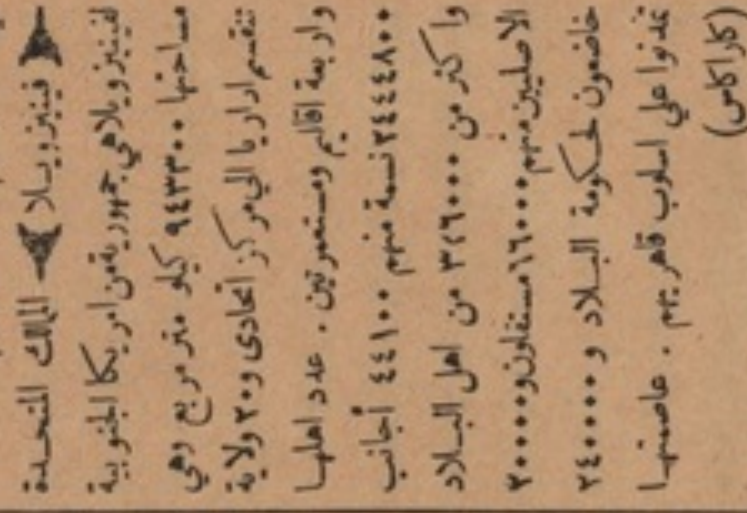 ﴿ فينيزويلا ﴾ الممالك المتحدة
لفينيزويلا هي جمهورية من امريكا الجنوبية
مساحتها ٩٤٣٣٠٠ كيلو متر مربع وهي
تنقسم اداريا الي مركز اتحادى و ٢٠ ولاية
واربعة اقاليم ومستعمرتين . عدد اهلها
٢٤٤٤٨٠٠ نسمة منهم ٤٤١٠٠ أجانب
واكثر من ٣٢٦٠٠٠ من اهل البلاد
الاصليين منهم ٦٦٠٠٠ مستقلون و ٢٠٠٠٠
خاضعون لحكومة البلاد و ٢٤٠٠٠٠
تمدنوا علي اسلوب قاهريهم . عاصمتها
(كاراكاس)